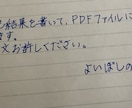 結果を書いて、PDFファイルに
ます。
文お許しください。
よいぼしの